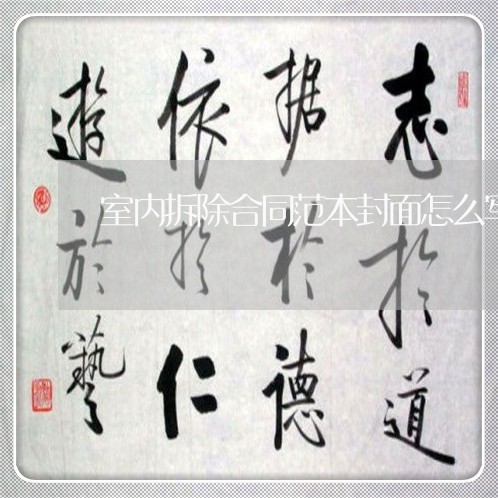 志扵道
据扵德
依扵仁
遊於藝
室内拆除合同范本封面怎么写